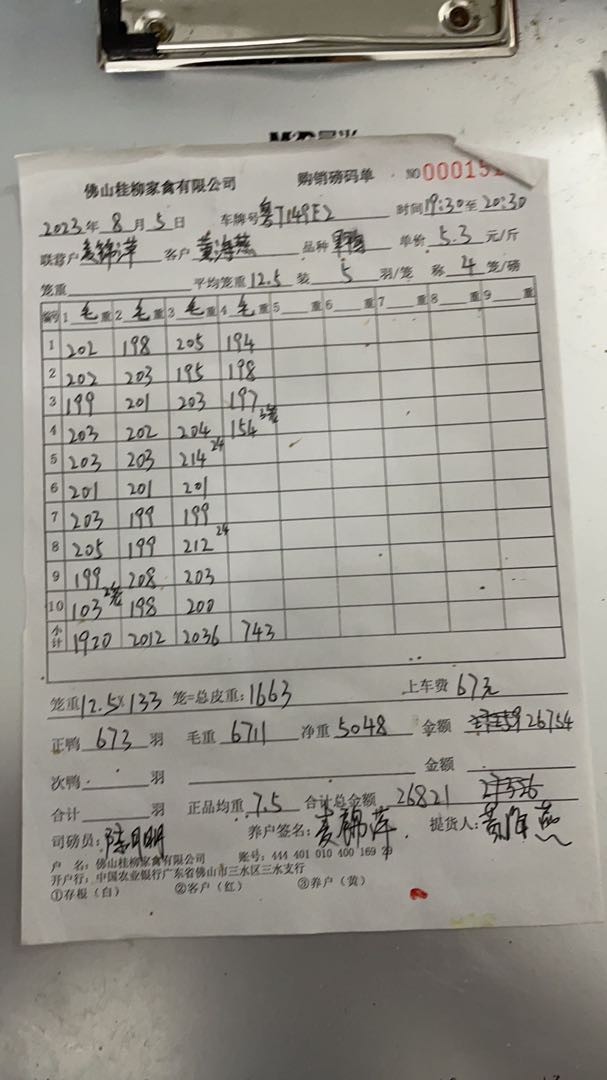 佛山桂柳家禽有限公司 购销磅码单 NO 000151
2023年 8 月 5 日 车牌号 粤T149E2 时间19:30至20:30
联营户 麦锦萍 客户 黄海燕 品种 单价 5.3 元/斤
笼重 平均笼重12.5 装 5 羽/笼 称 4 笼/磅
编号 1 毛 重 2 毛 重 3 毛 重 4 毛 重 5 重 6 重 7 重 8 重 9 重
1 202 198 205 194
2 202 203 195 198
3 199 201 203 197
4 203 202 204 154 3笼
5 203 203 214 24
6 201 201 201
7 203 199 199
8 205 199 212 24
9 199 208 203
10 103 2笼 198 200
小计 1920 2012 2036 743
笼重12.5×133 笼=总皮重:1663 上车费 67元
正鸭 673 羽 毛重 6711 净重 5048 金额 26754
次鸭 羽 金额
合计 羽 正品均重 7.5 合计总金额 26821
司磅员: 养户签名: 麦锦萍 提货人: 黄海燕
户 名: 佛山桂柳家禽有限公司 账号: 444 401 010 400 169 29
开户行: 中国农业银行广东省佛山市三水区三水支行
①存根(白) ②客户(红) ③养户(黄)